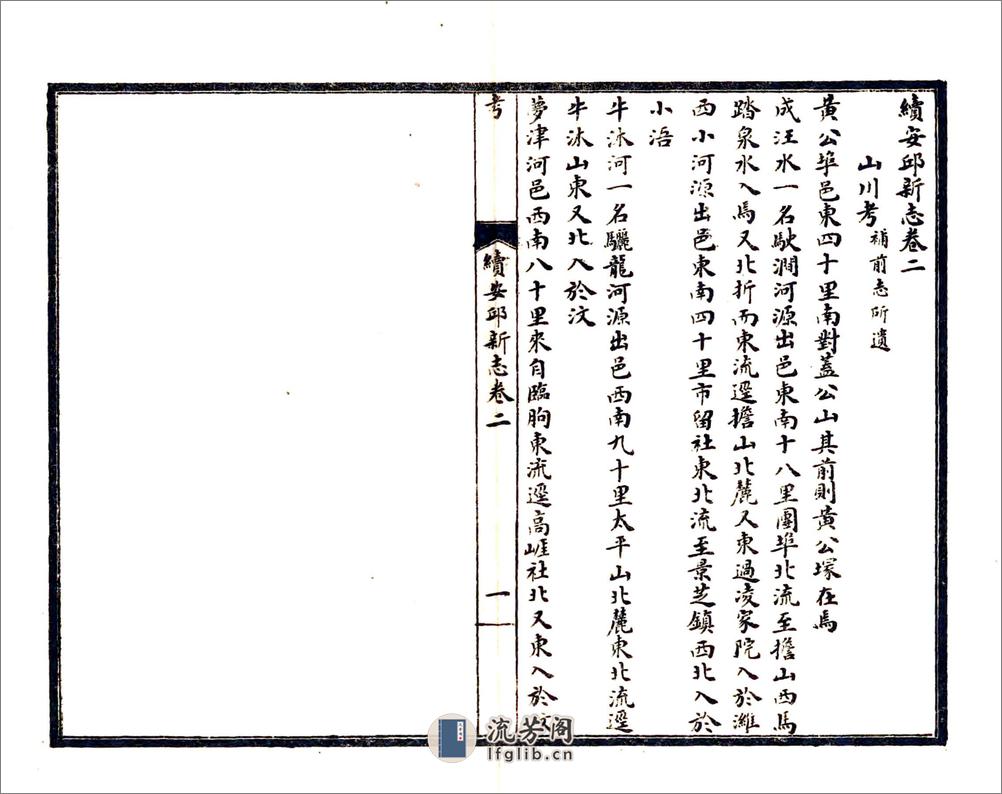 續安邱新志卷二
山川考 補前志所遺
黄公埠邑東四十里南對蓋公山其前則黄公塚在焉
成汪水一名駛澗河源出邑東南十八里團埠北流至擔山西馬
踏泉水入焉又北折而東流逕擔山北麓又東過凌家院入於濰
西小河源出邑東南四十里市留社東北流至景芝鎮西北入於
小浯
牛沐河一名驪龍河源出邑西南九十里太平山北麓東北流逕
牛沐山東又北入於汶
夢津河邑西南八十里來自臨朐東流逕高崕社北又東入於汶
考
續安邱新志卷二
一
流芳阁
lfglib.cn